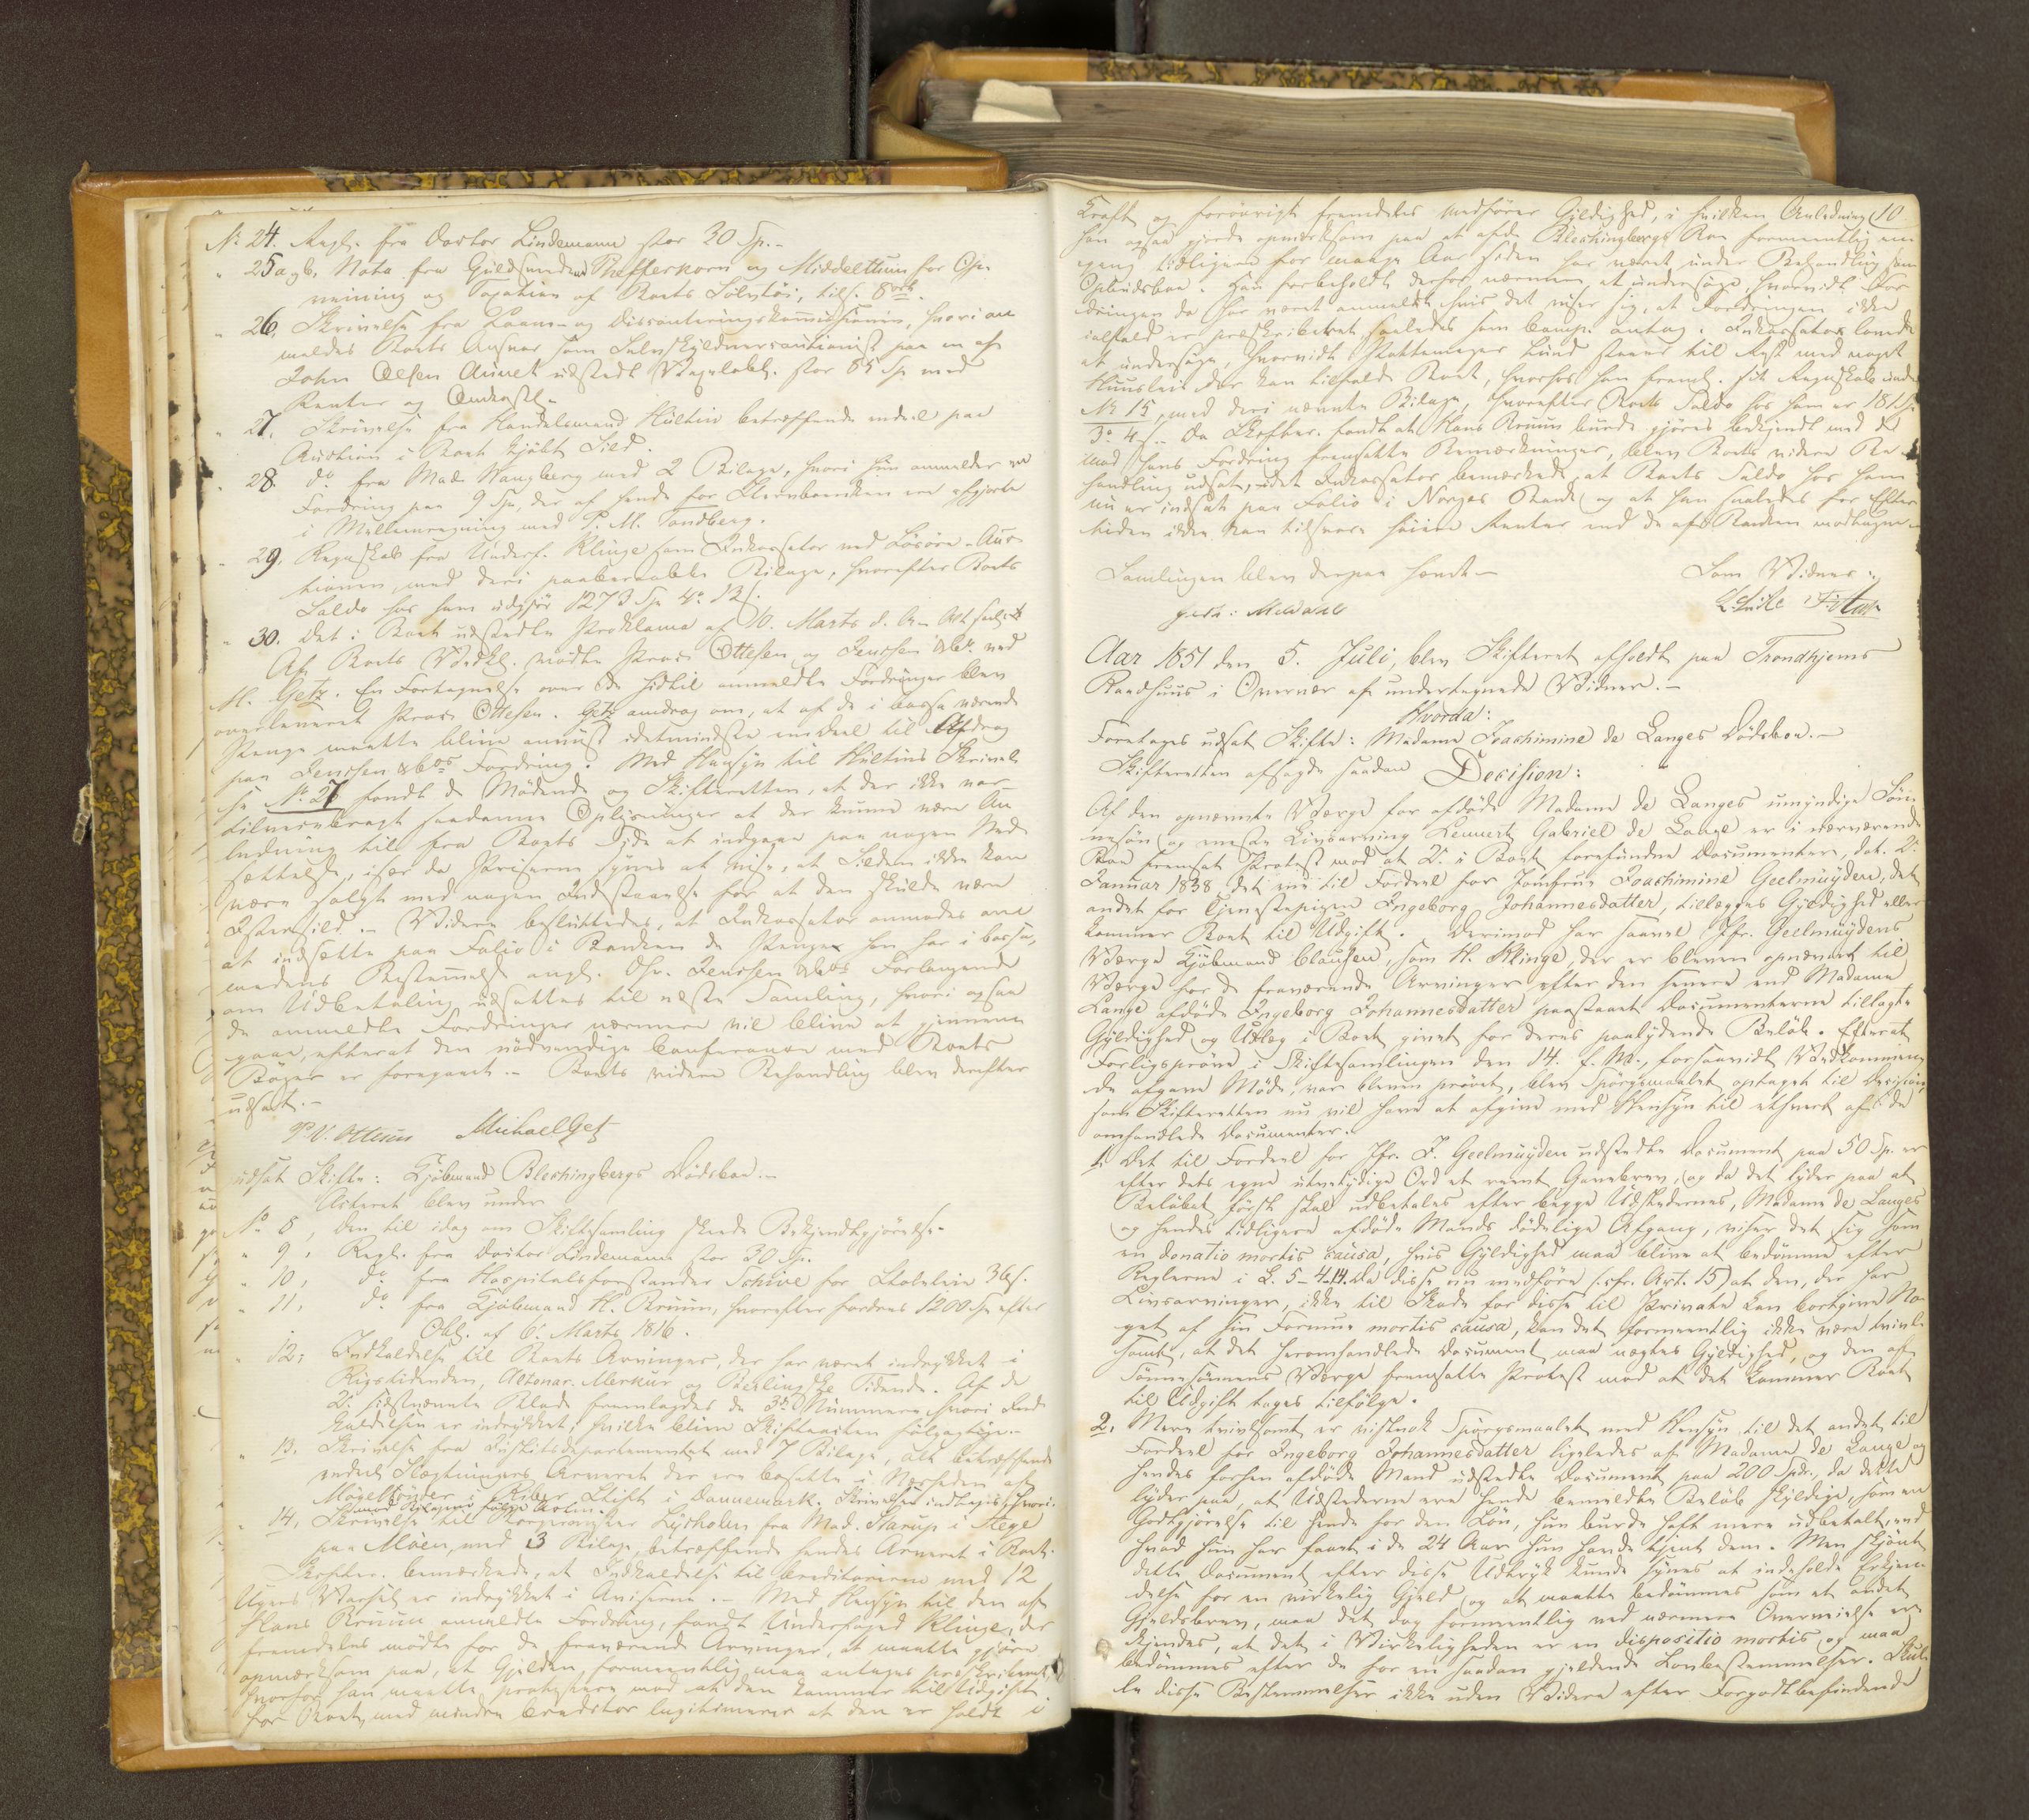 No 24. Regh. fra Doctor Lindemann stor 30 Sp.-
" 25 a & b. Nota fra Guldsmedene Pfefferkorn og Middelthun for Op-
veining og Taxation af Boets Sølvtøi, tils. 8 ort.
" 26, Skrivelse fra Laane- og Disconteringskommissionen, hvori an-
meldes Boets Ansvar som Selvskyldnercautionist paa en af
John Olsen Aunet udstedt Vexelobl. stor 65 Sp med
Renter og Omkostn.
" 27, Skrivelse fra Handelsmand Hultin betræffende endeel paa
Auction i Boet kjøbt Sild.
" 28. do fra Mad. Wangberg med 2 Bilage, hvori hun anmelder en
Fordring paa 9 Sp, der af hende for Steenbrænken ere afgjorte
i Mellemregning med P. M. Tondberg.
" 29, Regnskab fra Underf. Klinge som Inkassator ved Løsøre-Auc-
tionen, med deri paaberaabte Bilage, hvorefter Boets
Saldo hos ham udgjør 1273 Sp 4 o 12 s.
" 30. Det i Boet udstedte Proklama af 10. Marts d. A.
Af Boets Vedk. mødte Proc. Ottesen og Jenssen & Co. ved
M. Getz. En Fortegnelse over de hidtil anmeldte Fordringer blev
overleveret Proc. Ottesen. Getz androg om, at af de i Cassa værende
Penge maatte blive anvist idetmindste en Deel til Afdrag
paa Jenssen & Cos Fordring. Med Hensyn til Hultins Skrivel-
se No 27 fandt de Mødende og Skifteretten, at der ikke var
tilveiebragt saadanne Oplysninger at der kunne være An-
ledning til fra Boets Side at indgaae paa nogen Ned-
sættelse, især da Priserne synes at vise, at Silden ikke kan
være solgt med nogen Indestaaelse for at den skulde være
Isterssild. - Videre besluttedes, at Inkassator anmodes om
at indsætte paa Folio i Banken de Penge han har i Cassa,
medens Bestemmelse angl. Dhr. Jenssen & Cos Forlangende
om Udbetaling udsattes til næste Samling, hvori ogsaa
de anmeldte Fordringer nærmere vil blive at gjennem-
gaae, efterat den nødvendige Conference med Boets
Bøger er foregaaet. - Boets videre Behandling blev derefter
udsat.-
P. V. Ottesen Michael Getz
udsat Skifte: Kjøbmand Bleckingbergs Dødsboe.-
Acteret blev under
No 8, den til idag om Skiftesamling skede Bekjendtgjørelse
" 9, Regh. fra Doctor Lindemann stor 30 Sp.
" 10, do fra Hospitalsforstander Schive for Stoleleie 36 s.
" 11, do fra Kjøbmand H. Bruun, hvorefter fordres 1200 Sp efter
Obl. af 6. Marts 1816.
" 12, Indkaldelse til Boets Arvinger, der har været indrykket i
Rigstidenden, Altonar. Merkur og Berlingske Tidende. Af de
2de sidstnævnte Blade fremlagdes de 3de Nummere hvori Ind-
kaldelsen er indrykket, hvilke blive Skifteacten følgagtige.-
" 13. Skrivelse fra Justitsdepartementet med 7 Bilage, alt betræffende
endeel Slægtningers Arveret der ere bosatte i Nærheden af
Møgeltønder i Riber Stift i Dannemark. Skrivelsen indtages, hvori-
mod Bilagene følge Acten.
" 14. Skrivelse til Lysholm fra Mad. Starup i Stege
paa Møen, med 3 Bilage, betræffende hendes Arveret i Boet.
Skifter. bemærkede, at Indkaldelse til Creditorerne med 12
Ugers Varsel er indrykket i Aviserne. - Med Hensyn til den af
Hans Bruun anmeldte Fordring, fandt Underfoged Klinge, der
fremdeles mødte for de fraværende Arvinger, at maatte gjøre
opmærksom paa, at Gjelden formeentlig maa antages præskriberet,
hvorfor han maatte protestere mod at den kommer til Udgift
for Boet, med mindre Creditor legitimerer at den er holdt i
Kraft og forøvrigt fremdeles medfører Gyldighed, i hvilken Anledning 10.
han ogsaa gjorde opmærksom paa at afdøde Bleckingbergs Boe formeentlig en-
gang tidligere for mange Aar siden har været under Behandling som
Opbudsboe. Han forbeholdt derfor nærmere at undersøge, hvorvidt For-
dringen da har været anmeldt hvis det viser sig, at Fordringen ikke
ialfald er præskriberet saaledes som Comp. antog. Inkassator lovede
at undersøge, hvorvidt Pottemager Lund staaer til Rest med noget
Huusleie der kan tilfalde Boet, hvorhos han freml. sit Regnskab under
No 15, med deri nævnte Bilage, hvorefter Boets Saldo hos ham er 181 Sp
3 o 4 s. - Da Skifter. fandt at Hans Bruun burde gjøres bekjendt med de
mod hans Fordring fremsatte Bemærkninger, blev Boets videre Be-
handling udsat, idet Inkassator bemærkede, at Boets Saldo hos ham
nu er indsat paa Folio i Norges Bank og at han saaledes for Efter-
tiden ikke kan tilsvare høiere Renter end de af Banken modtagne.
Samlingen blev derpaa hævet.- Som Vidner:
Meldahl
Aar 1851 den 5. Juli, blev Skifteret afholdt paa Trondhjems
Raadhuus i Overvær af undertegnede Vidner.-
Hvorda:
Foretages udsat Skifte: Madame Joachimine de Langes Dødsboe.-
Skifteretten afsagde saadan Decision:
Af den opnævnte Værge for afdøde Madame de Langes umyndige Søn-
nesøn og eneste Livsarving Lennert Gabriel de Lange er i nærværende
Boe fremsat Protest mod at 2de i Boet forefundne Documenter, dat. 2.
Januar 1838, det ene til Fordeel for Jomfrue Joachimine Geelmuyden, det
andet for Tjenestepigen Ingeborg Johannesdatter, tillægges Gyldighed eller
kommer Boet til Udgift. Derimod har saavel Jfr. Geelmuydens
Værge Kjøbmand Clausen, som H. Klinge, der er bleven opnævnt til
Værge for de fraværende Arvinger efter den senere end Madame
Lange afdøde Ingeborg Johannesdatter paastaaet Documenterne tillagte
Gyldighed og Udlæg i Boet givet for deres paalydende Beløb. Efterat
Forligsprøve i Skiftesamlingen den 14. f. M., forsaavidt Vedkommen-
de afgave Møde, var bleven prøvet, blev Spørgsmaalet optaget til Decision,
som Skifteretten nu vil have at afgive med Hensyn til ethvert af de
omhandlede Documenter.
1. Det til Fordeel for Jfr. J. Geelmuyden udstedte Document paa 50 Sp. er
efter dets egne utvetydige Ord et reent Gavebrev, og da det lyder paa at
Beløbet først skal udbetales efter begge Udstedernes, Madame de Langes
og hendes tidligere afdøde Mands dødelige Afgang, viser det sig som
en donatio mortis causa, hvis Gyldighed maa blive at bedømme efter
Reglerne i L. 5-4-14. Da disse nu medføre (cfr. Art. 15) at den, der har
Livsarvinger, ikke til Skade for disse til Private kan bortgive No-
get af sin Formue mortis causa, kan det formeentlig ikke være tvivl-
somt, at det heromhandlede Document maa nægtes Gyldighed, og den af
Sønnesønnens Værge fremsatte Protest mod at det kommer Boet
til Udgift tages tilfølge.
2. Mere tvivlsomt er vistnok Spørgsmaalet med Hensyn til det andet til
Fordeel for Ingeborg Johannesdatter ligeledes af Madame de Lange og
hendes forhen afdøde Mand udstedte Document paa 200 Spdr., da dette
lyder paa, at Udstederne ere hende bemeldte Beløb skyldige, som en
Godtgjørelse til hende for den Løn, hun burde havt mere udbetalt, end
hvad hun har faaet i de 24 Aar hun havde tjent dem. Men skjøndt
dette Document efter disse Udtryk kunde synes at indeholde Erkjen-
delse for en virkelig Gjeld og at maatte bedømmes som et andet
Gjeldsbrev, maa det dog formeentlig ved nærmere Overveielse er-
kjendes, at det i Virkeligheden er en dispositio mortis og maa
bedømmes efter de for en saadan gjeldende Lovbestemmelser. Skul-
le disse Bestemmelser ikke uden Videre efter Forgodtbefindende